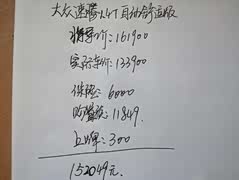 大众速腾1.4T自动舒适版
指导价:161900
实际车价:133900
保险:6000
购置税:11849.
上牌:300
152049元.